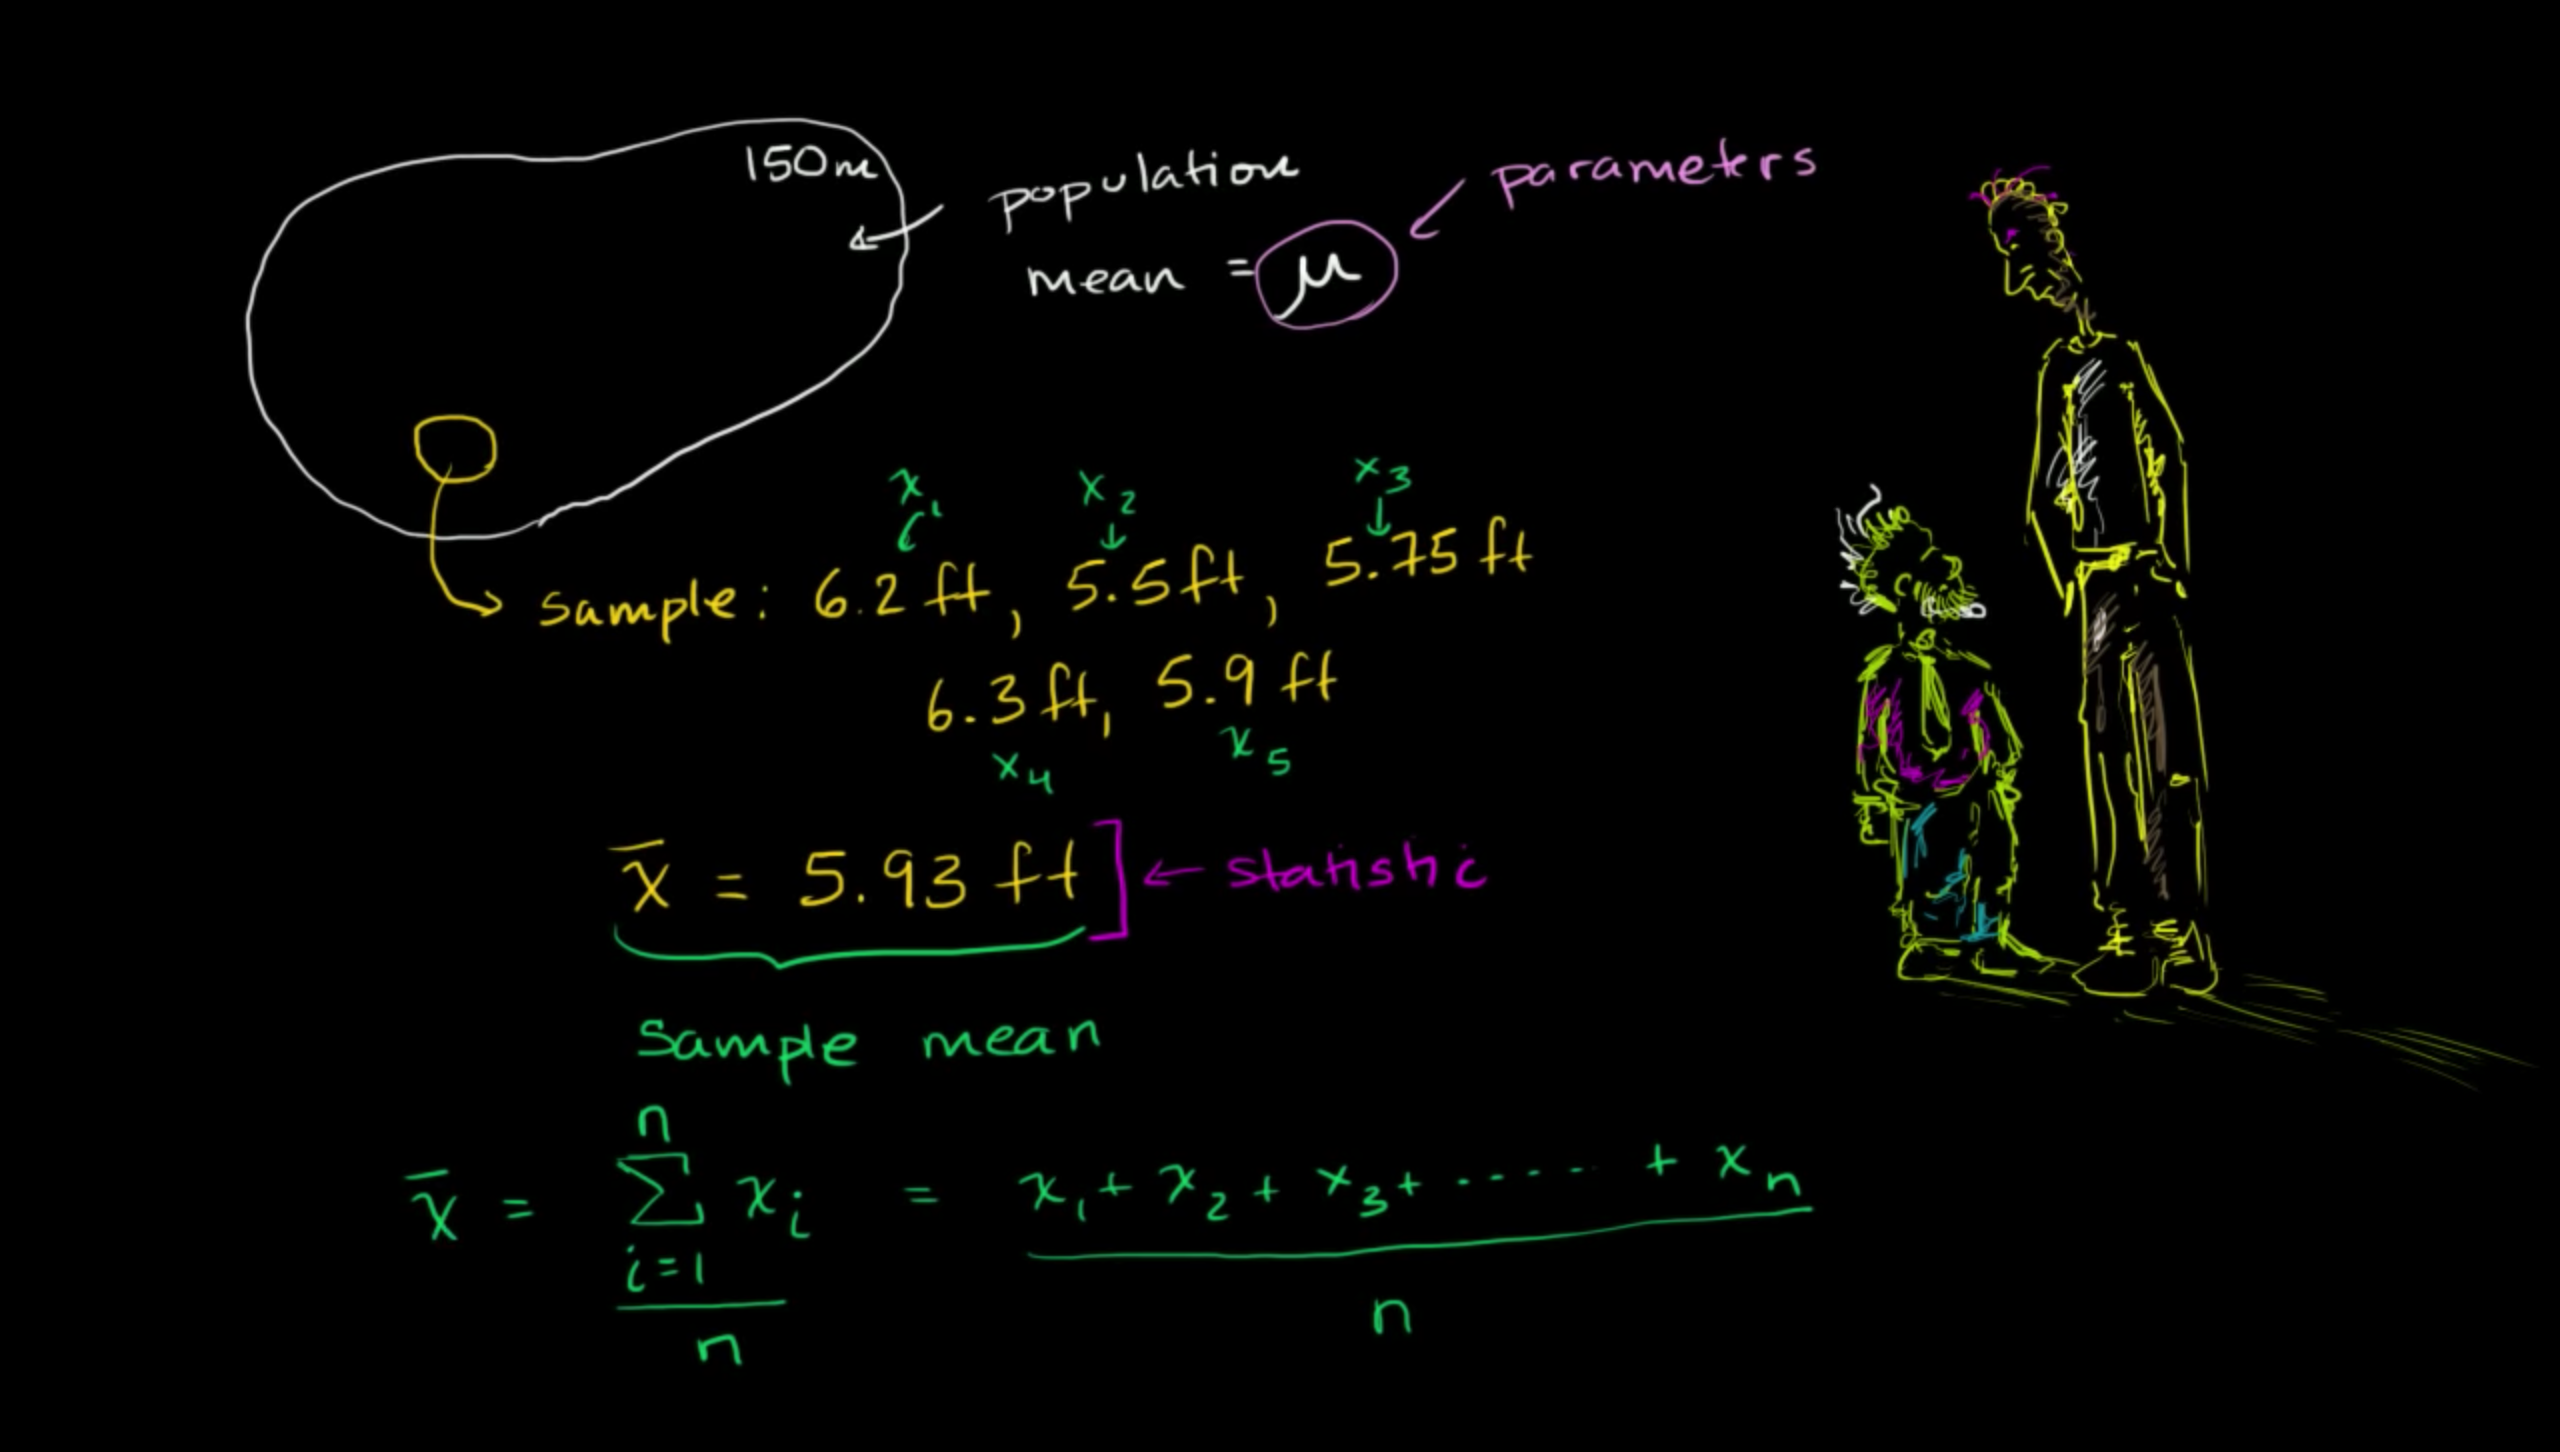 150m
population
parameters
mean = μ
x₁ x₂ x₃
sample: 6.2 ft, 5.5 ft, 5.75 ft
6.3 ft, 5.9 ft
x₄ x₅
x̄ = 5.93 ft ← statistic
Sample mean
n
x̄ = Σ xᵢ = x₁ + x₂ + x₃ + ······ + xₙ
i=1
n n